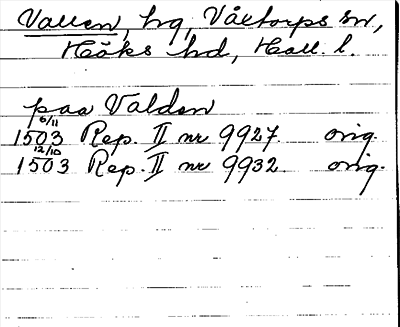 Vallen, hg, Våxtorps sn,
Höks hd, Hall. l.
paa Valden
6/11
1503 Rep. II nr 9927 orig.
12/10
1503 Rep. II nr 9932 orig.